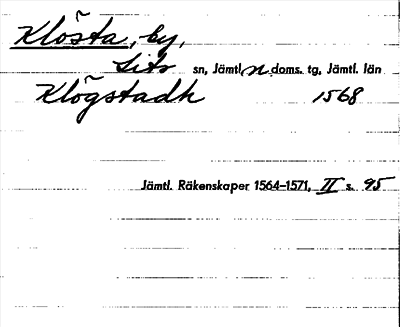 Klösta, by,
Lits sn, Jämtl. n. doms. tg, Jämtl. län
Klögstadh 1568
Jämtl. Räkenskaper 1564–1571, II s. 95